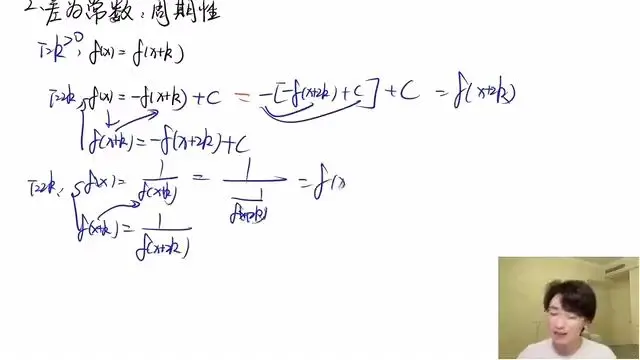 2、差为常数：周期性
T=k>0, f(x)=f(x+k)
T=2k, f(x)=-f(x+k)+C = -[-f(x+2k)+C]+C = f(x+2k)
f(x+k)=-f(x+2k)+C
T=2k, f(x)=1/f(x+k) = 1/(1/f(x+2k)) = f(x
f(x+k)=1/f(x+2k)